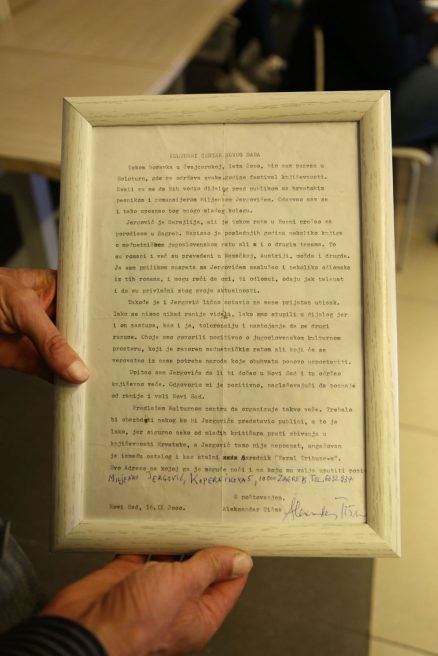 KULTURNI CENTAR NOVOG SADA
Tokom boravka u Švajcarskoj, leta 2000, bio sam pozvan u
Soloturn, gde se održava svake godine festival književnosti.
da bih vodio dijalog pred publikom sa hrvatskim
pesnikom i romansijerom Miljenkom Jergovićem. Odazvao sam se
i tako upoznao tog mnogo mlađeg kolegu.
Jergović je Sarajlija, ali je tokom rata u Bosni prešao sa
porodicom u Zagreb. Napisao je poslednjih godina nekoliko knjiga
o međuetničkom jugoslovenskom ratu ali i o drugim temama. To
su romani i već su prevedeni u Nemačkoj, Austriji, možda i drugde.
Ja sam prilikom susreta sa Jergovićem saslušao i nekoliko odlomaka
iz tih romana, i mogu reći da oni, ti odlomci, odaju jak talenat
i da su privlačni zbog svoje aktuelnosti.
Takođe je i Jergović lično ostavio na mene prijatan utisak.
Iako se nismo nikad ranije videli, lako smo stupili u dijalog jer
i on zastupa, kao i ja, toleranciju i nastojanje da se drugi
razume. Oboje smo govorili pozitivno o jugoslovenskom kulturnom
prostoru, koji je razoren međuetničkim ratom ali koji će se
verovatno iz same potrebe naroda koje obuhvata ponovo uspostaviti.
Upitao sam Jergovića da li bi došao u Novi Sad i tu održao
književno veče. Odgovorio mi je pozitivno, naglašavajući da poznaje
od ranije i voli Novi Sad.
Predlažem Kulturnom centru da organizuje takvo veče. Trebalo
bi obezbediti nekog ko bi Jergovića predstavio publici, a to je
lako, jer sigurno neko od mlađih kritičara prati zbivanja u
književnosti Hrvatske, a Jergović tamo nije nepoznat, angažovan
je između ostalog i kao stalni saradnik "Feral Tribune-a".
Evo adrese na kojoj ga je moguće naći i na koju mu valja uputiti
MILJENKO JERGOVIĆ, KOPERNIKOVA 5, 10000 ZAGREB TEL.
S poštovanjem,
Novi Sad, 16.IX 2000. Aleksandar Tišma